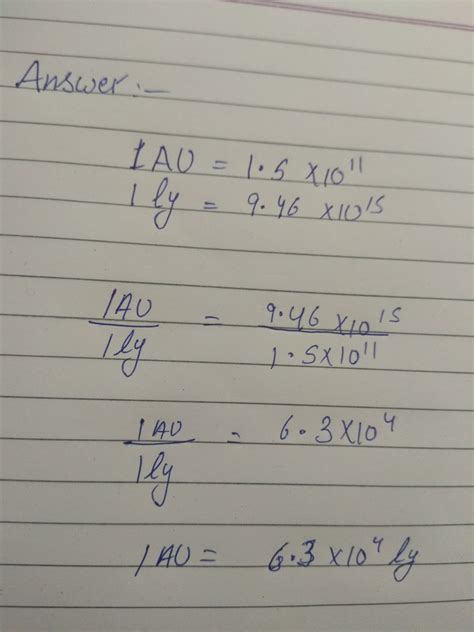 Answer:-
1 AU = 1.5 ×10^11
1 ly = 9.46 ×10^15
1AU/1ly = 9.46 ×10^15/1.5×10^11
1AU/1ly = 6.3×10^4
1 AU = 6.3 ×10^4 ly